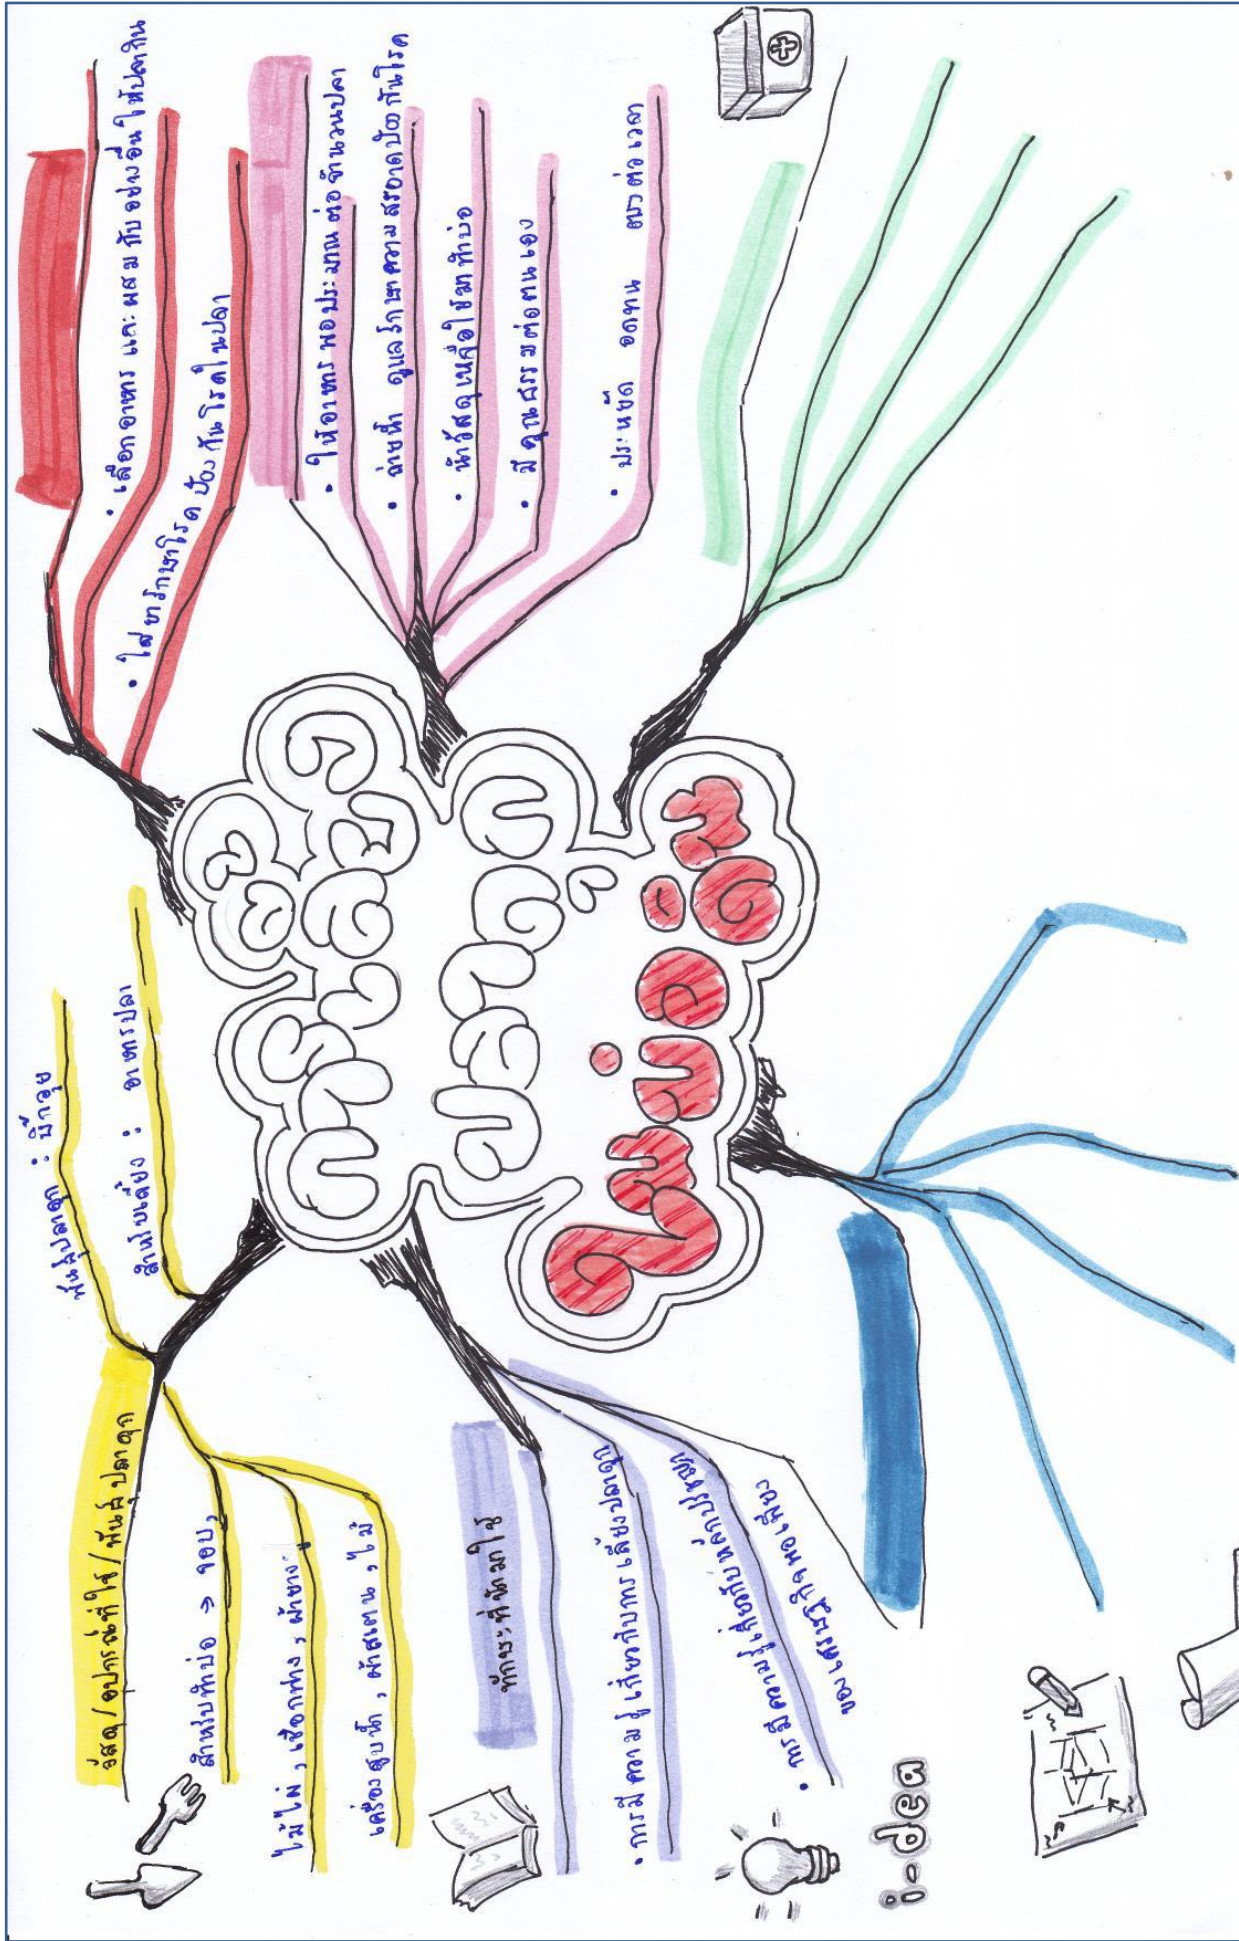 การเลี้ยง
ปลาดุก
ในบ่อดิน
วัสดุ/อุปกรณ์ที่ใช้/พันธุ์ปลาดุก
พันธุ์ปลาดุก : บิ๊กอุย
สำหรับเลี้ยง : อาหารปลา
สำหรับทำบ่อ → จอบ,
ไม้ไผ่, เชือกฟาง, ผ้ายาง
เครื่องสูบน้ำ, ผ้าสแตน, ไม้
ทักษะที่นำมาใช้
• การมีความรู้เกี่ยวกับการเลี้ยงปลาดุก
• การมีความรู้เกี่ยวกับหลักปรัชญา
ของเศรษฐกิจพอเพียง
i-dea
• เลือกอาหาร และผสมกับอย่างอื่นให้ปลากิน
• ใส่ยารักษาโรค ป้องกันโรคในปลา
• ให้อาหารพอประมาณ ต่อจำนวนปลา
• ถ่ายน้ำ ดูแลรักษาความสะอาดป้องกันโรค
• นำวัสดุเหลือใช้มาทำบ่อ
• มีคุณธรรมต่อตนเอง
• ประหยัด อดทน ตรงต่อเวลา